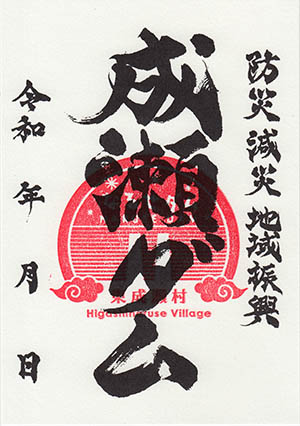 防災減災 地域振興
成瀬ダム
令和 年 月 日
東成瀬村
Higashinaruse Village